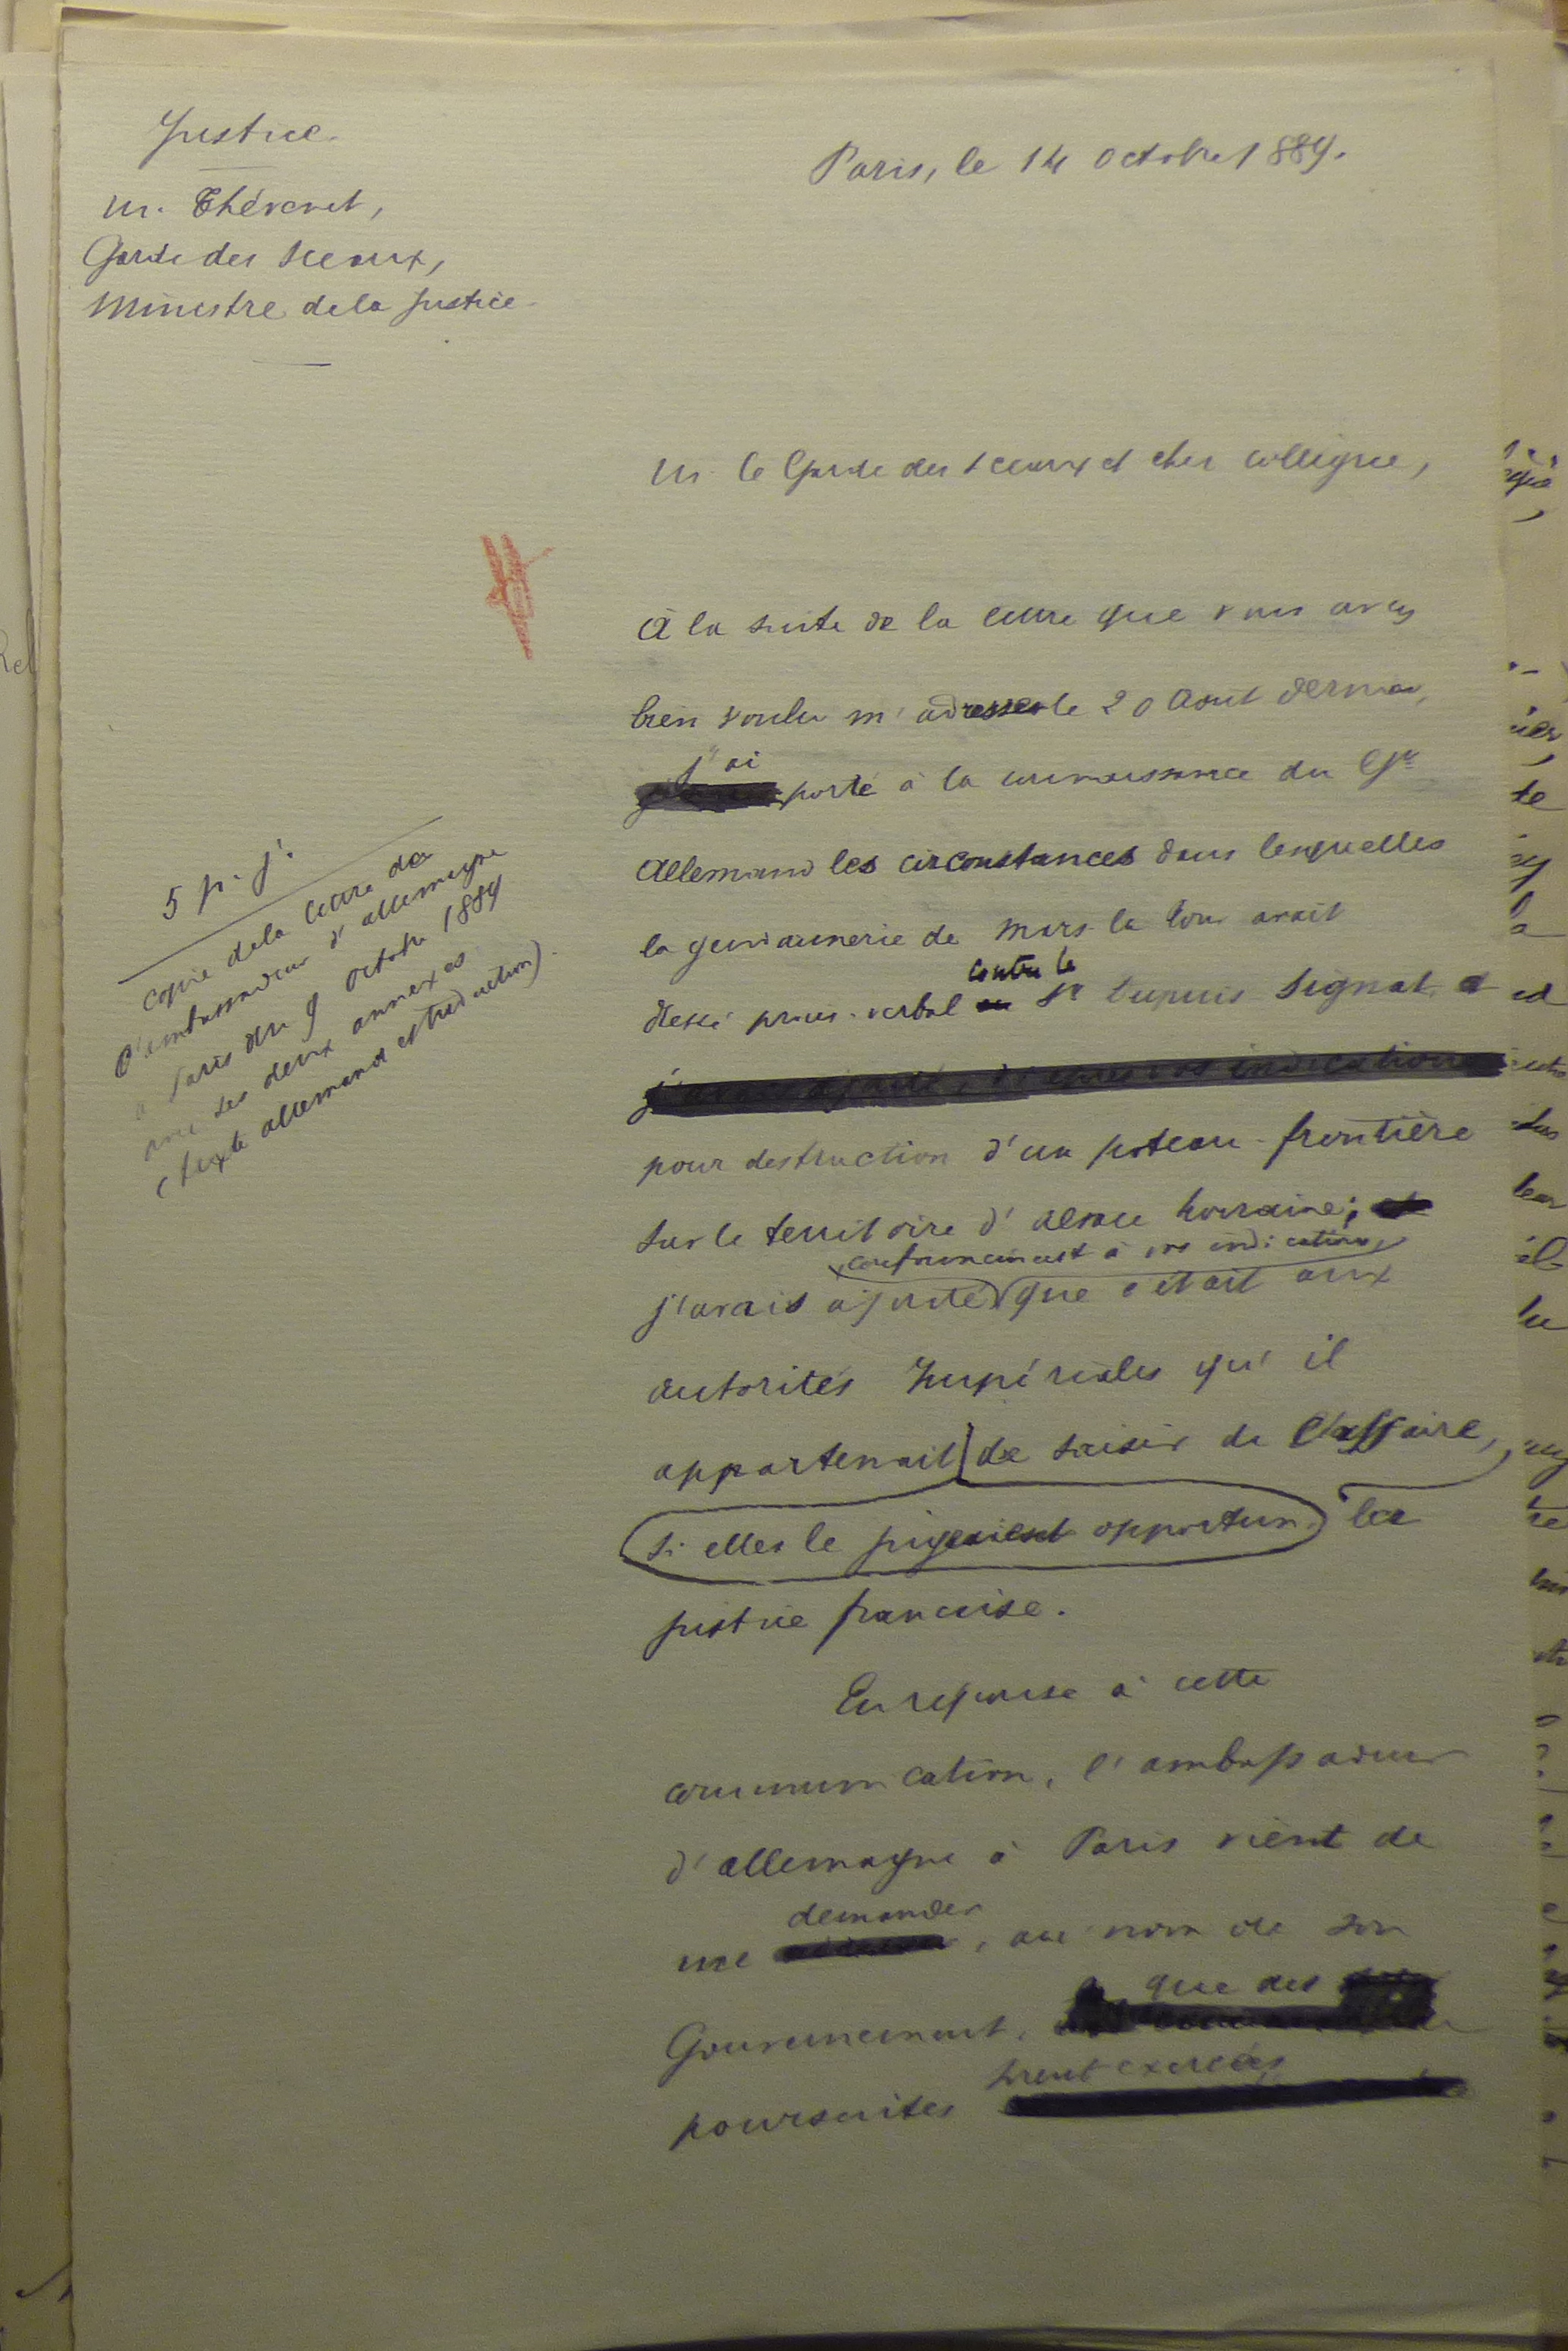 Justice.
M. Thévenet,
Garde des Sceaux,
Ministre de la Justice.
Paris, le 14 Octobre 1889.
M. le Garde des Sceaux et cher collègue,
À la suite de la lettre que vous avez
bien voulu m'adresser le 20 Août dernier,
j'ai
porté à la connaissance du Gt
Allemand les circonstances dans lesquelles
la gendarmerie de Mars la Tour avait
contre le
dressé procès-verbal au Sr Dupuis Signat, et
j'avais ajouté, d'après vos indications
pour destruction d'un poteau-frontière
sur le territoire d'Alsace Lorraine; et
conformément à vos indications,
j'avais ajouté que c'était aux
autorités Impériales qu'il
appartenait de saisir de l'affaire,
si elles le jugeaient opportun, la
justice française.
En réponse à cette
communication, l'ambassadeur
d'Allemagne à Paris vient de
demander
me , au nom de son
que des
Gouvernement,
soient exercées
poursuites
5 p. j.
copie de la lettre de
l'ambassadeur d'Allemagne
à Paris du 9 Octobre 1889
avec ses deux annexes
(texte allemand et traduction).